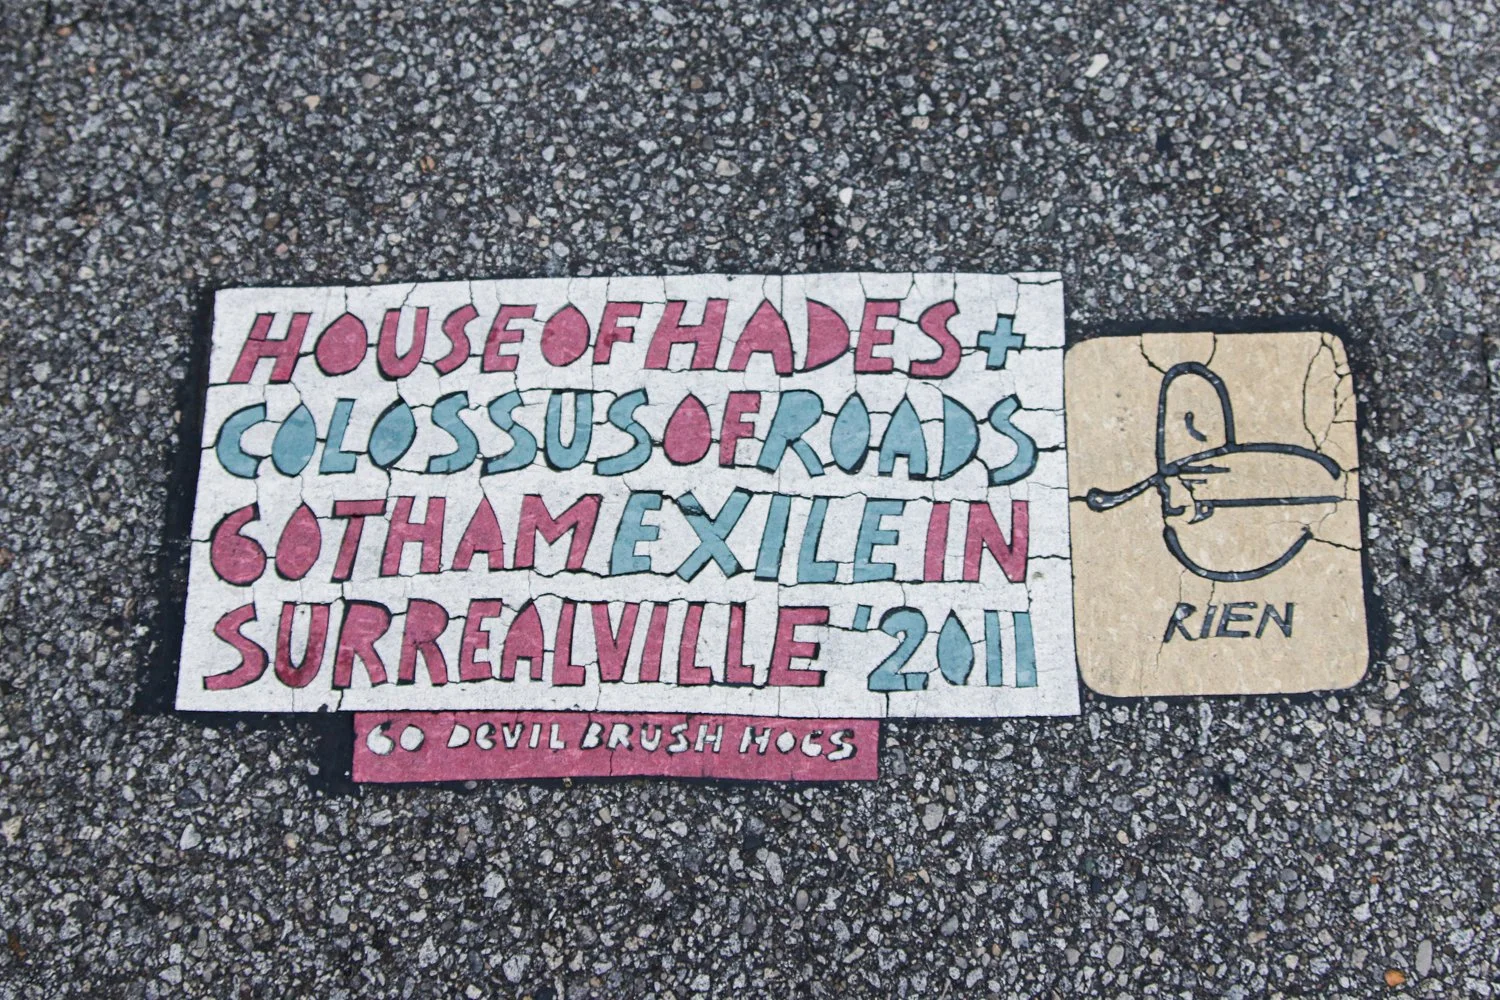 HOUSE OF HADES +
COLOSSUS OF ROADS
GOTHAM EXILE IN
SURREALVILLE '2011
GO DEVIL BRUSH HOGS
RIEN